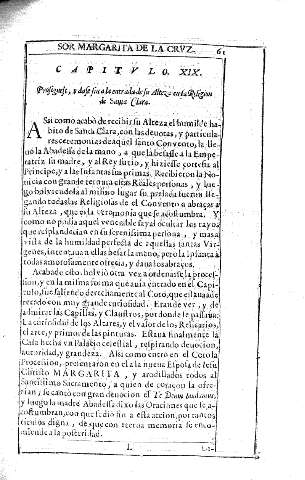 SOR MARGARITA DE LA CRVZ. 61
CAPITVLO. XIX.
Prosiguese, y dase fin a la entrada de su Alteza en la Religion
de Santa Clara.
ASsi como acabò de recibir su Alteza el humilde ha
bito de Santa Clara, con las deuotas, y particula
res ceremonias de aquel santo Conuento, la lle
uò la Abadessa de la mano, a que la besasse a la Empe-
ratriz su madre, y al Rey su tio, y hiziesse cortesia al
Principe, y a las Infantas sus primas. Recibieron la No-
uicia con grande ternura estas Reales personas, y lue-
go boluiendola al mismo lugar su prelada fueron lle-
gando todas las Religiosas de el Conuento a abraçar a
su Alteza, que es la ceremonia que se acostumbra. Y
como no podia aquel venerable sayal ocultar los rayos
que resplandecian en su serenissima persona, y mas a
vista de la humildad perfecta de aquellas santas Vir-
genes, intentauan ellas besar la mano, pero la Infanta à
todas amorosamente ofrecia, y daua los abraços.
Acabado esto, boluiò otra vez a ordenarse la proces-
sion, y en la misma forma que auia entrado en el Capi-
tulo, fue saliendo derechamente al Coro, que estaua ade
reçado con muy grande curiosidad. Era de ver, y de
admirar las Capillas, y Claustros, por donde se passaua.
La curiosidad de los Altares, y el valor de los Relicarios,
el arte, y primor de las pinturas. Estaua finalmente la
Casa hecha vn Palacio celestial, respirando deuocion,
autoridad, y grandeza. Assi como entrò en el Coro la
Procession, presentaron en el a la nueua Esposa de Iesu
Christo MARGARITA, y arrodillados todos al
Santissimo Sacramento, a quien de coraçon la ofre-
cian, se cantò con gran deuocion el Te Deum laudamus,
y luego la madre Abadessa dixo las Oraciones que se a-
costumbran, con que se diò fin a esta accion, por tantos
titulos digna, de que con eterna memoria se en-
comiende a la posteridad.
L